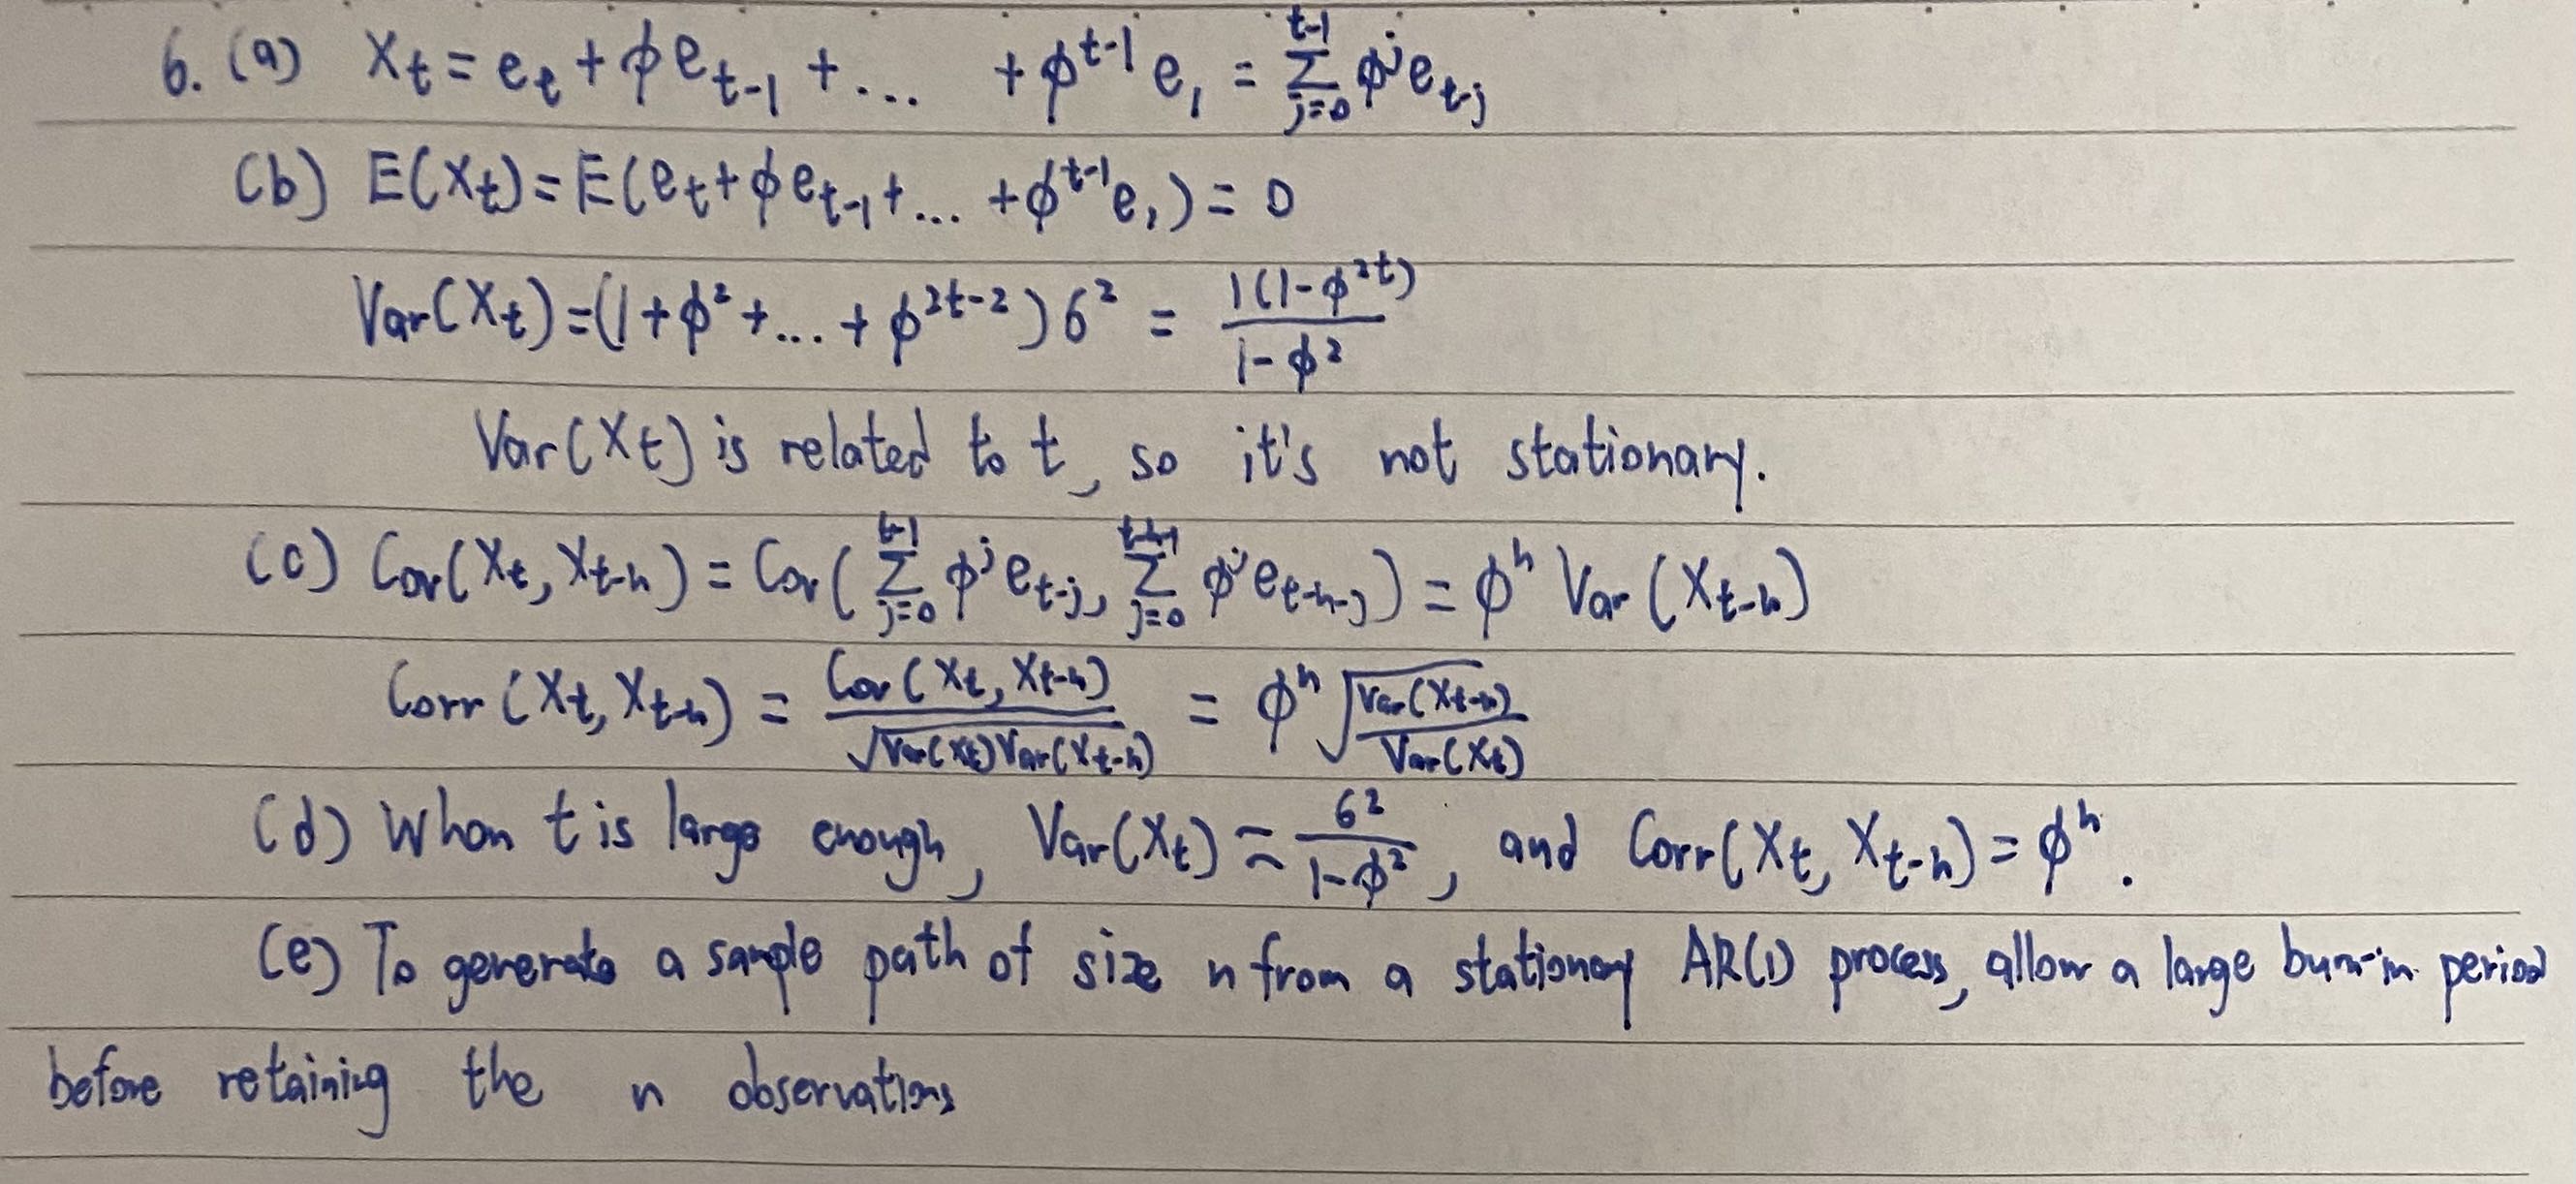 6. (a) Xt = et + φet-1 + ... + φ^(t-1) e1 = Σ_(j=0)^(t-1) φ^j e_(t-j)
(b) E(Xt) = E(et + φet-1 + ... + φ^(t-1) e1) = 0
Var(Xt) = (1 + φ² + ... + φ^(2t-2)) 6² = 1(1-φ^(2t)) / (1-φ²)
Var(Xt) is related to t, so it's not stationary.
(c) Cov(Xt, Xt-h) = Cov(Σ_(j=0)^(t-1) φ^j e_(t-j), Σ_(j=0)^(t-h-1) φ^j e_(t-h-j)) = φ^h Var(Xt-h)
Corr(Xt, Xt-h) = Cov(Xt, Xt-h) / √(Var(Xt)Var(Xt-h)) = φ^h √(Var(Xt-h) / Var(Xt))
(d) When t is large enough, Var(Xt) ≈ 6² / (1-φ²), and Corr(Xt, Xt-h) = φ^h.
(e) To generate a sample path of size n from a stationary AR(1) process, allow a large burn-in period
before retaining the n observations